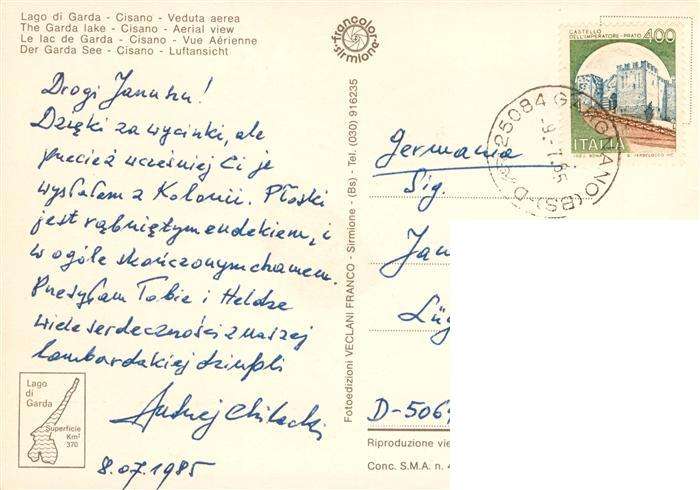 Lago di Garda - Cisano - Veduta aerea
The Garda lake - Cisano - Aerial view
Le lac de Garda - Cisano - Vue Aérienne
Der Garda See - Cisano - Luftansicht
francolor
sirmione
Drogi Januszu!
Dzięki za wycinki, ale
przecież wcześniej Ci je
wysłałam z Kolonii. Płoski
jest rąbniętym endekiem, i
w ogóle skończonym chamem.
Przesyłam Tobie i Heldze
wiele serdeczności z naszej
lombardzkiej dziupli
Andrzej
8.07.1985
Lago
di
Garda
Superficie
Km²
370
Fotoedizioni VECLANI FRANCO - Sirmione - (Bs) - Tel. (030) 916235
CASTELLO
DELL'IMPERATORE - PRATO
400
ITALIA
25084 GARGNANO (BS)
-9.-7.85
Germania
Sig.
Jan
Lüg
D-506
Riproduzione vie
Conc. S.M.A. n. 4